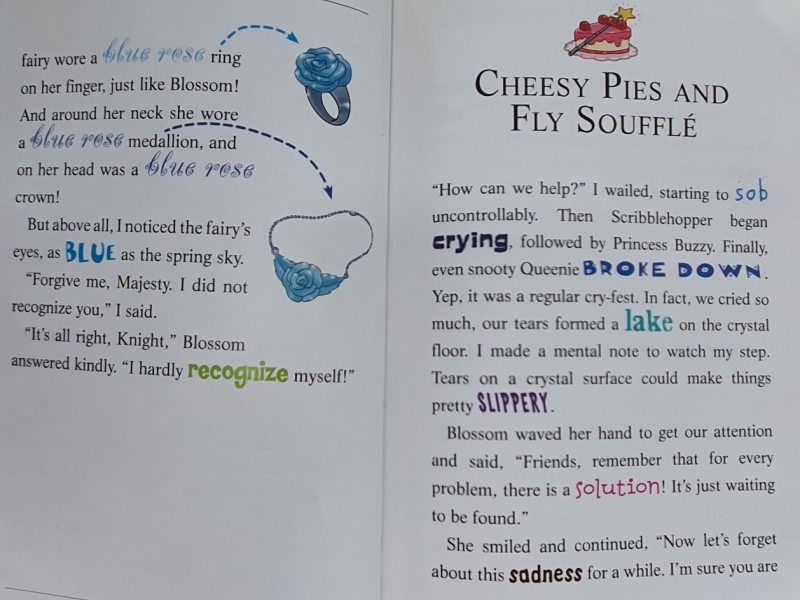 fairy wore a blue rose ring
on her finger, just like Blossom!
And around her neck she wore
a blue rose medallion, and
on her head was a blue rose
crown!
But above all, I noticed the fairy's
eyes, as BLUE as the spring sky.
"Forgive me, Majesty. I did not
recognize you," I said.
"It's all right, Knight," Blossom
answered kindly. "I hardly recognize myself!"
CHEESY PIES AND
FLY SOUFFLÉ
"How can we help?" I wailed, starting to sob
uncontrollably. Then Scribblehopper began
crying, followed by Princess Buzzy. Finally,
even snooty Queenie BROKE DOWN.
Yep, it was a regular cry-fest. In fact, we cried so
much, our tears formed a lake on the crystal
floor. I made a mental note to watch my step.
Tears on a crystal surface could make things
pretty SLIPPERY.
Blossom waved her hand to get our attention
and said, "Friends, remember that for every
problem, there is a solution! It's just waiting
to be found."
She smiled and continued, "Now let's forget
about this sadness for a while. I'm sure you are